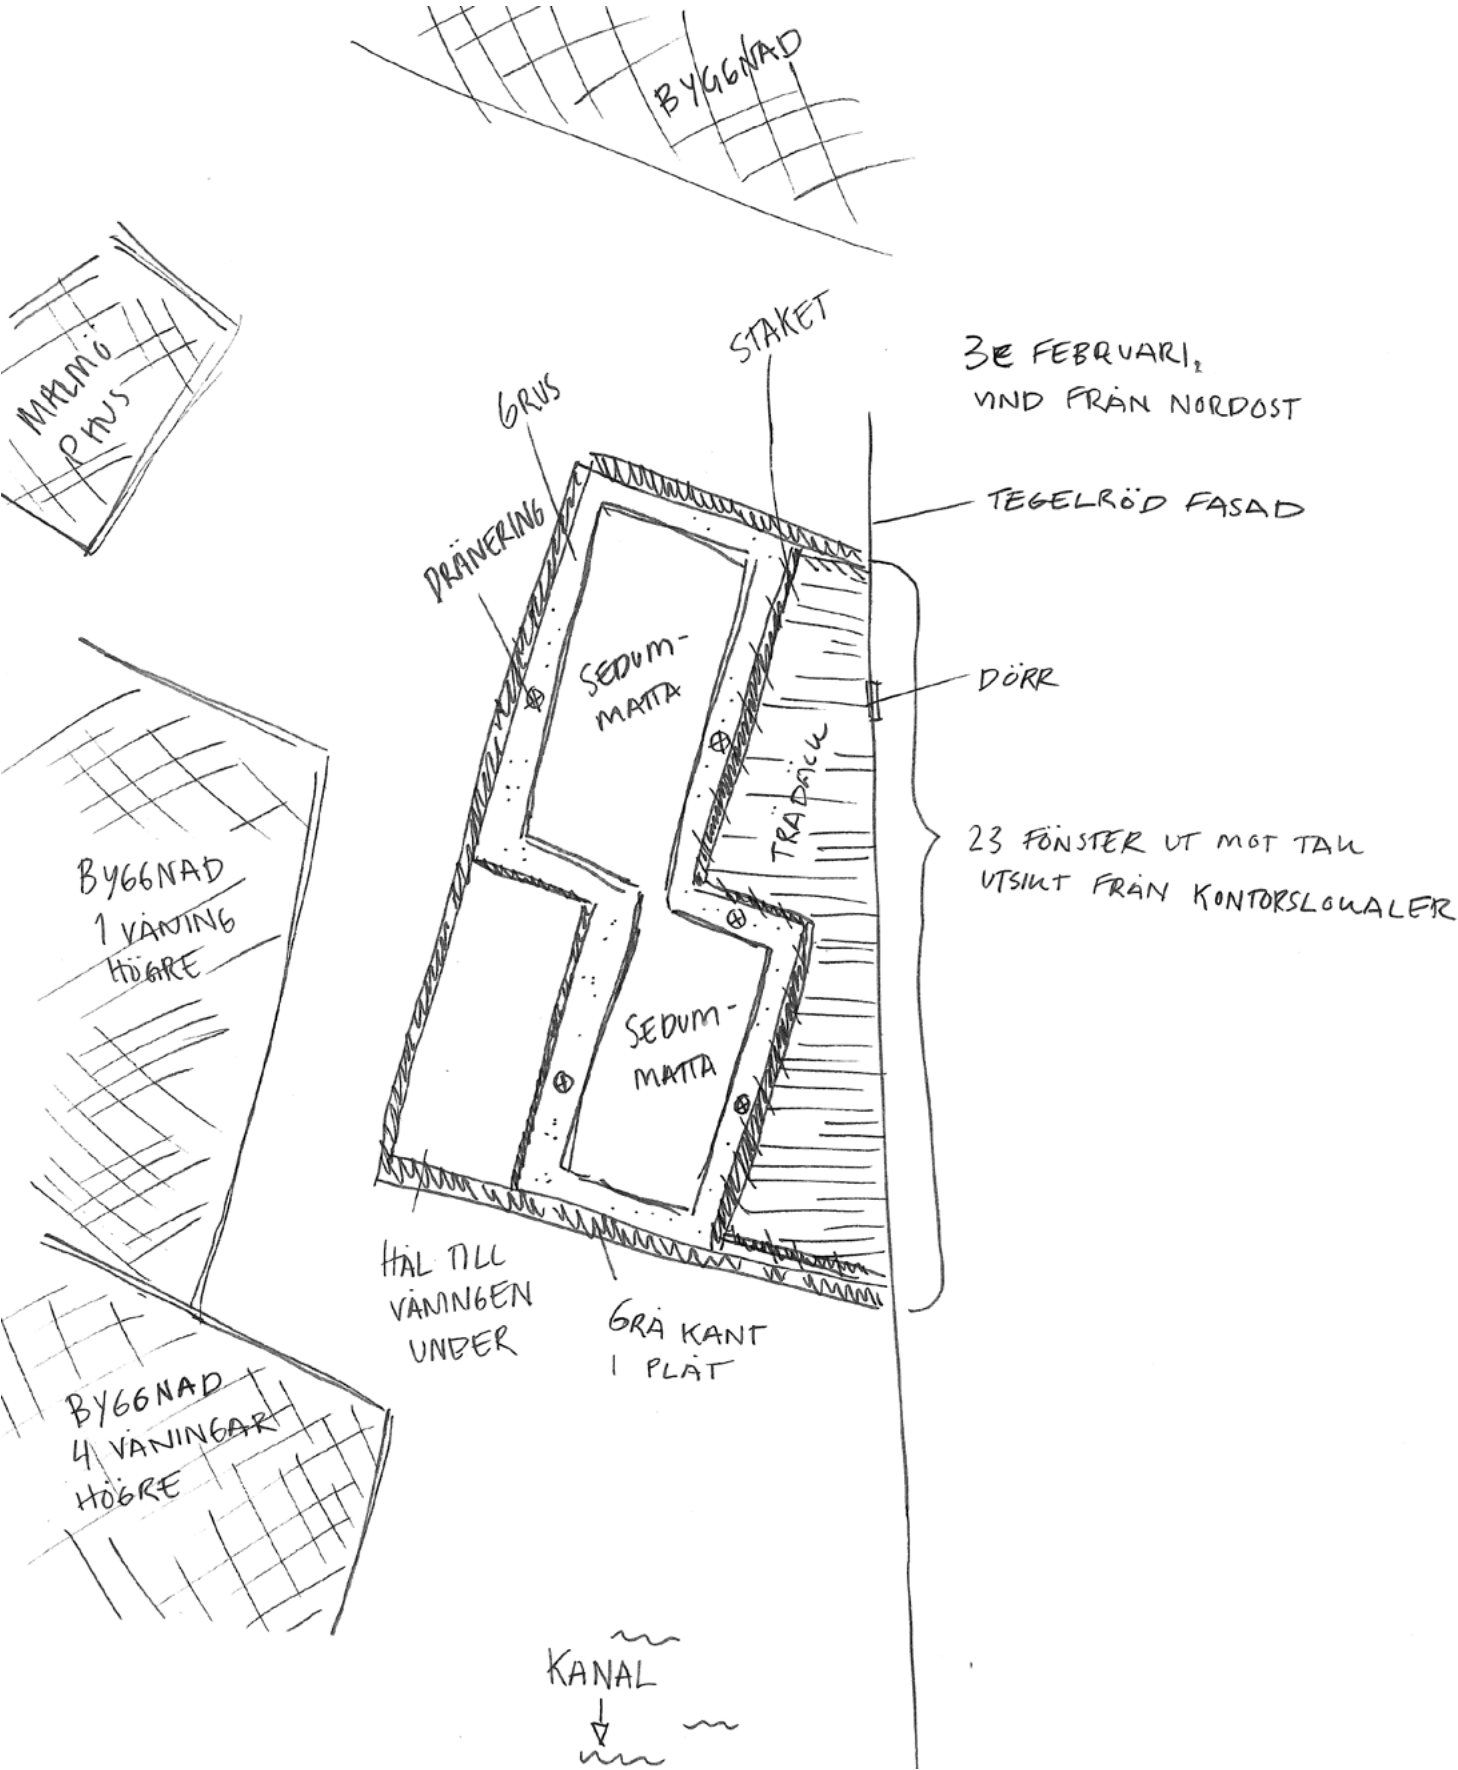 BYGGNAD
STAKET
3E FEBRUARI,
VIND FRÅN NORDOST
MALMÖ
P HUS
GRUS
TEGELRÖD FASAD
DRÄNERING
SEDUM-
MATTA
DÖRR
TRÄDÄCK
23 FÖNSTER UT MOT TAK
UTSIKT FRÅN KONTORSLOKALER
BYGGNAD
1 VÅNING
HÖGRE
SEDUM-
MATTA
HÅL TILL
VÅNINGEN
UNDER
GRÅ KANT
I PLÅT
BYGGNAD
4 VÅNINGAR
HÖGRE
KANAL